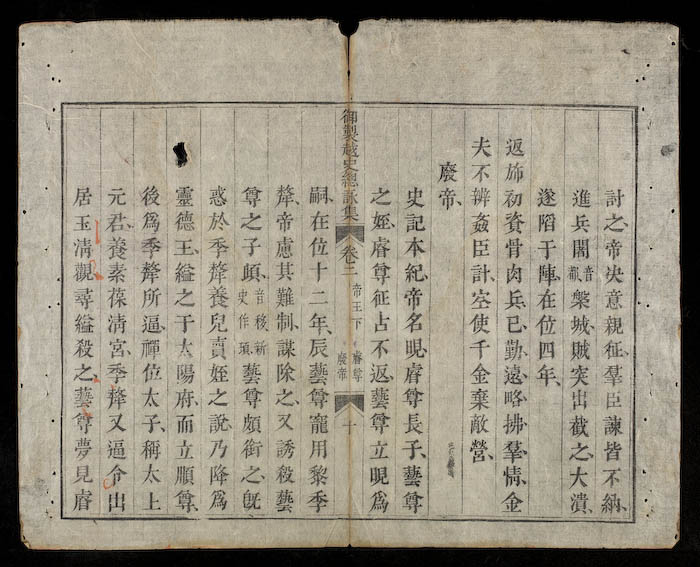 討之帝决意親征羣臣諫皆不納
進兵闍音覩槃城賊突出截之大潰
遂陷于陣在位四年
返斾初資骨肉兵已勤遠略拂羣情金
夫不辨姦臣計空使千金棄敵營
廢帝
史記本紀帝名晛睿尊長子藝尊
之姪睿尊征占不返藝尊立晛爲
嗣在位十二年辰藝尊寵用黎季
御製越史總詠集 卷三 帝王下 睿尊 廢帝 十
犛帝慮其難制謀除之又誘殺藝
尊之子頊音稷新史作頊藝尊頗銜之旣
惑於季犛養兒賣姪之說乃降爲
靈德王縊之于太陽府而立順尊
後爲季犛所逼禪位太子稱太上
元君養素葆淸宮季犛又逼令出
居玉淸觀尋縊殺之藝尊夢見睿